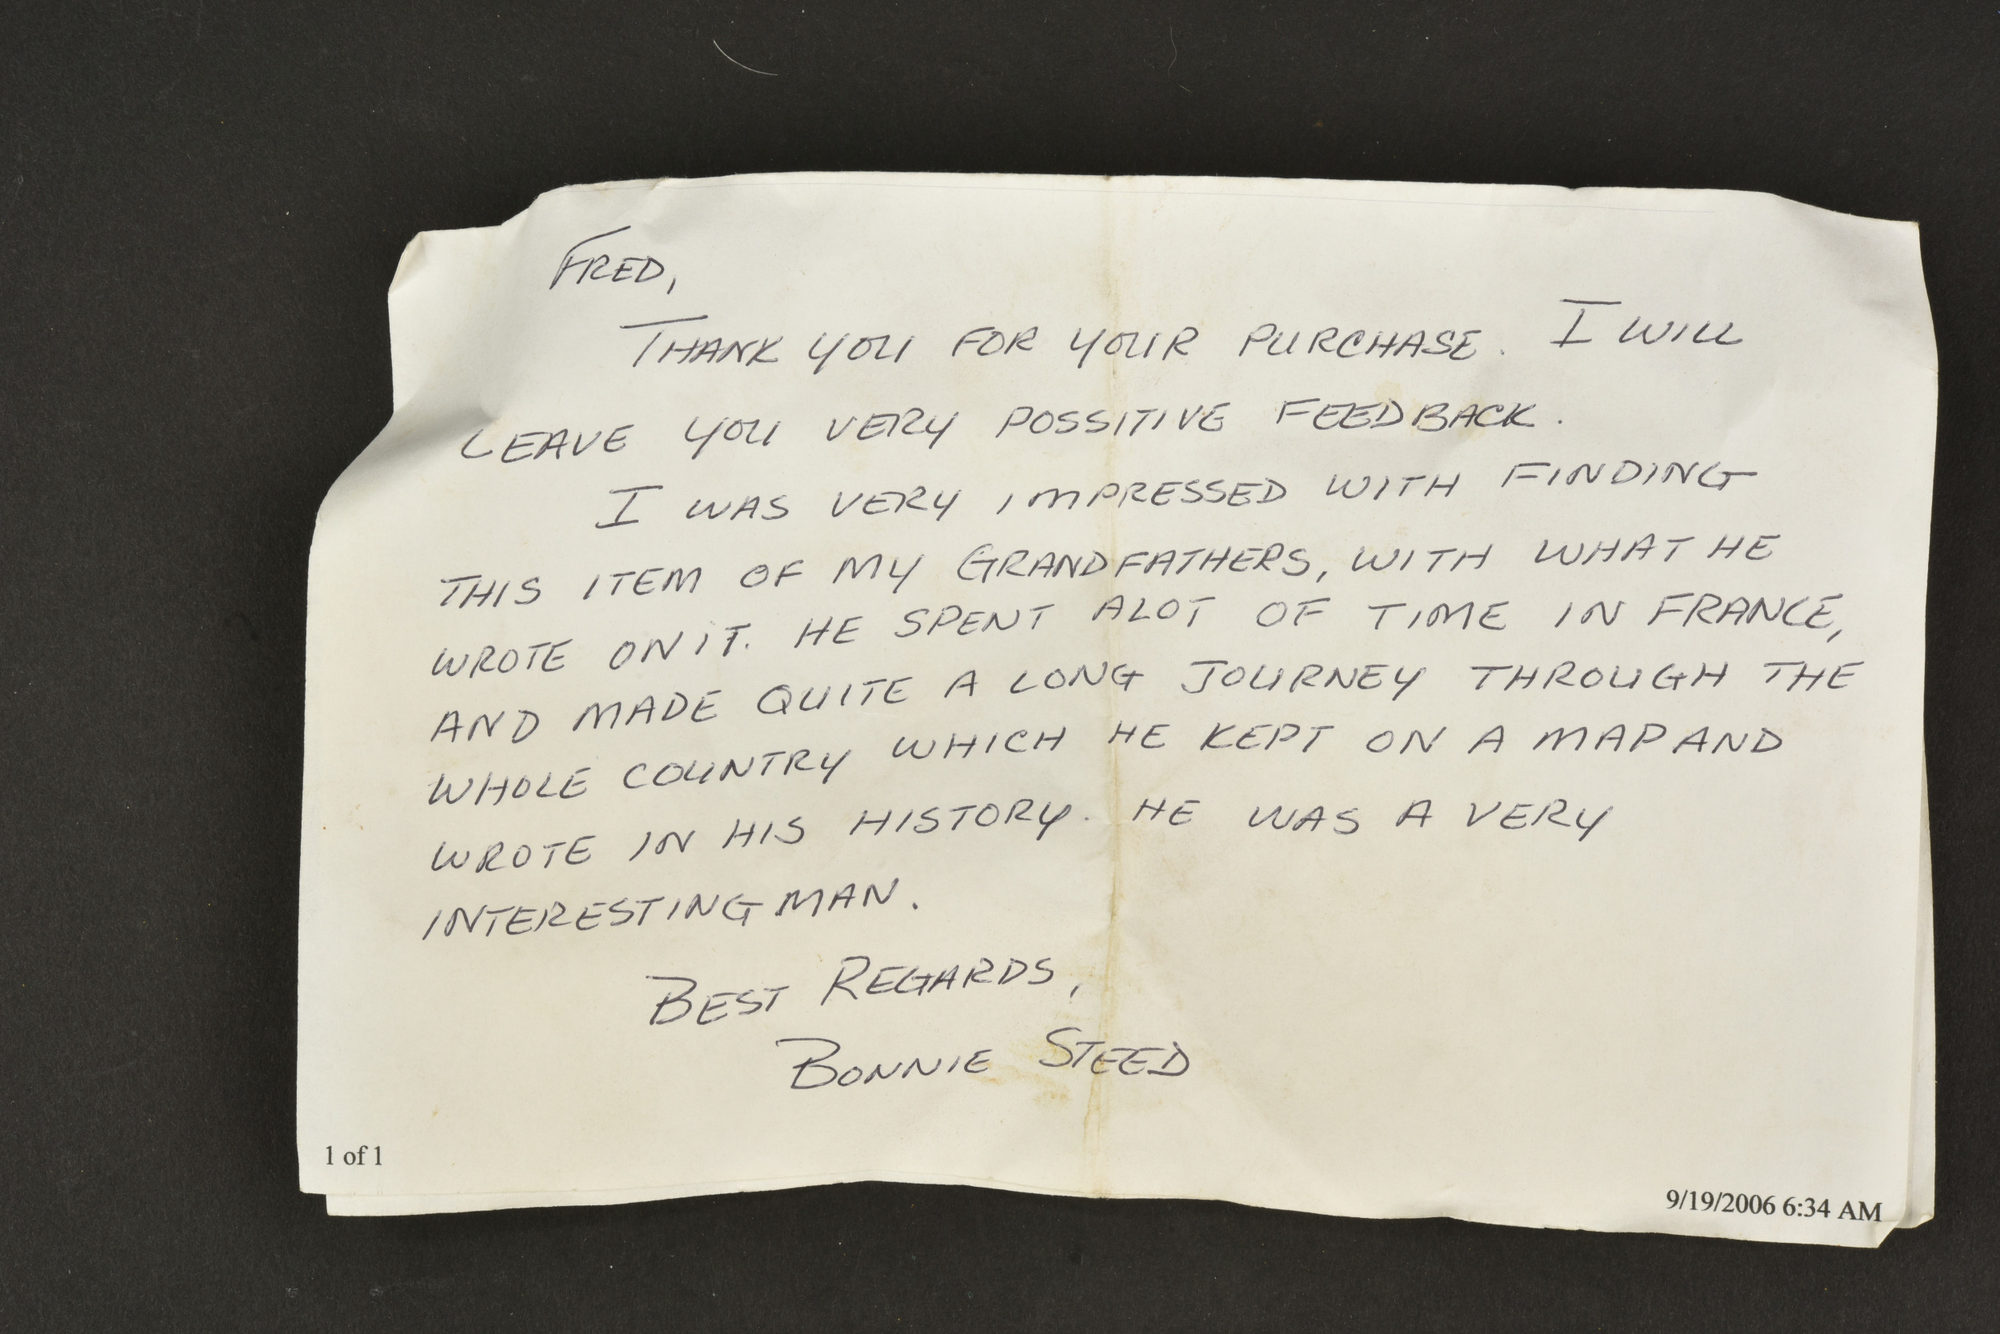 FRED,
THANK YOU FOR YOUR PURCHASE. I WILL
LEAVE YOU VERY POSSITIVE FEEDBACK.
I WAS VERY IMPRESSED WITH FINDING
THIS ITEM OF MY GRANDFATHERS, WITH WHAT HE
WROTE ON IT. HE SPENT ALOT OF TIME IN FRANCE,
AND MADE QUITE A LONG JOURNEY THROUGH THE
WHOLE COUNTRY WHICH HE KEPT ON A MAP AND
WROTE IN HIS HISTORY. HE WAS A VERY
INTERESTING MAN.
BEST REGARDS,
BONNIE STEED
1 of 1
9/19/2006 6:34 AM